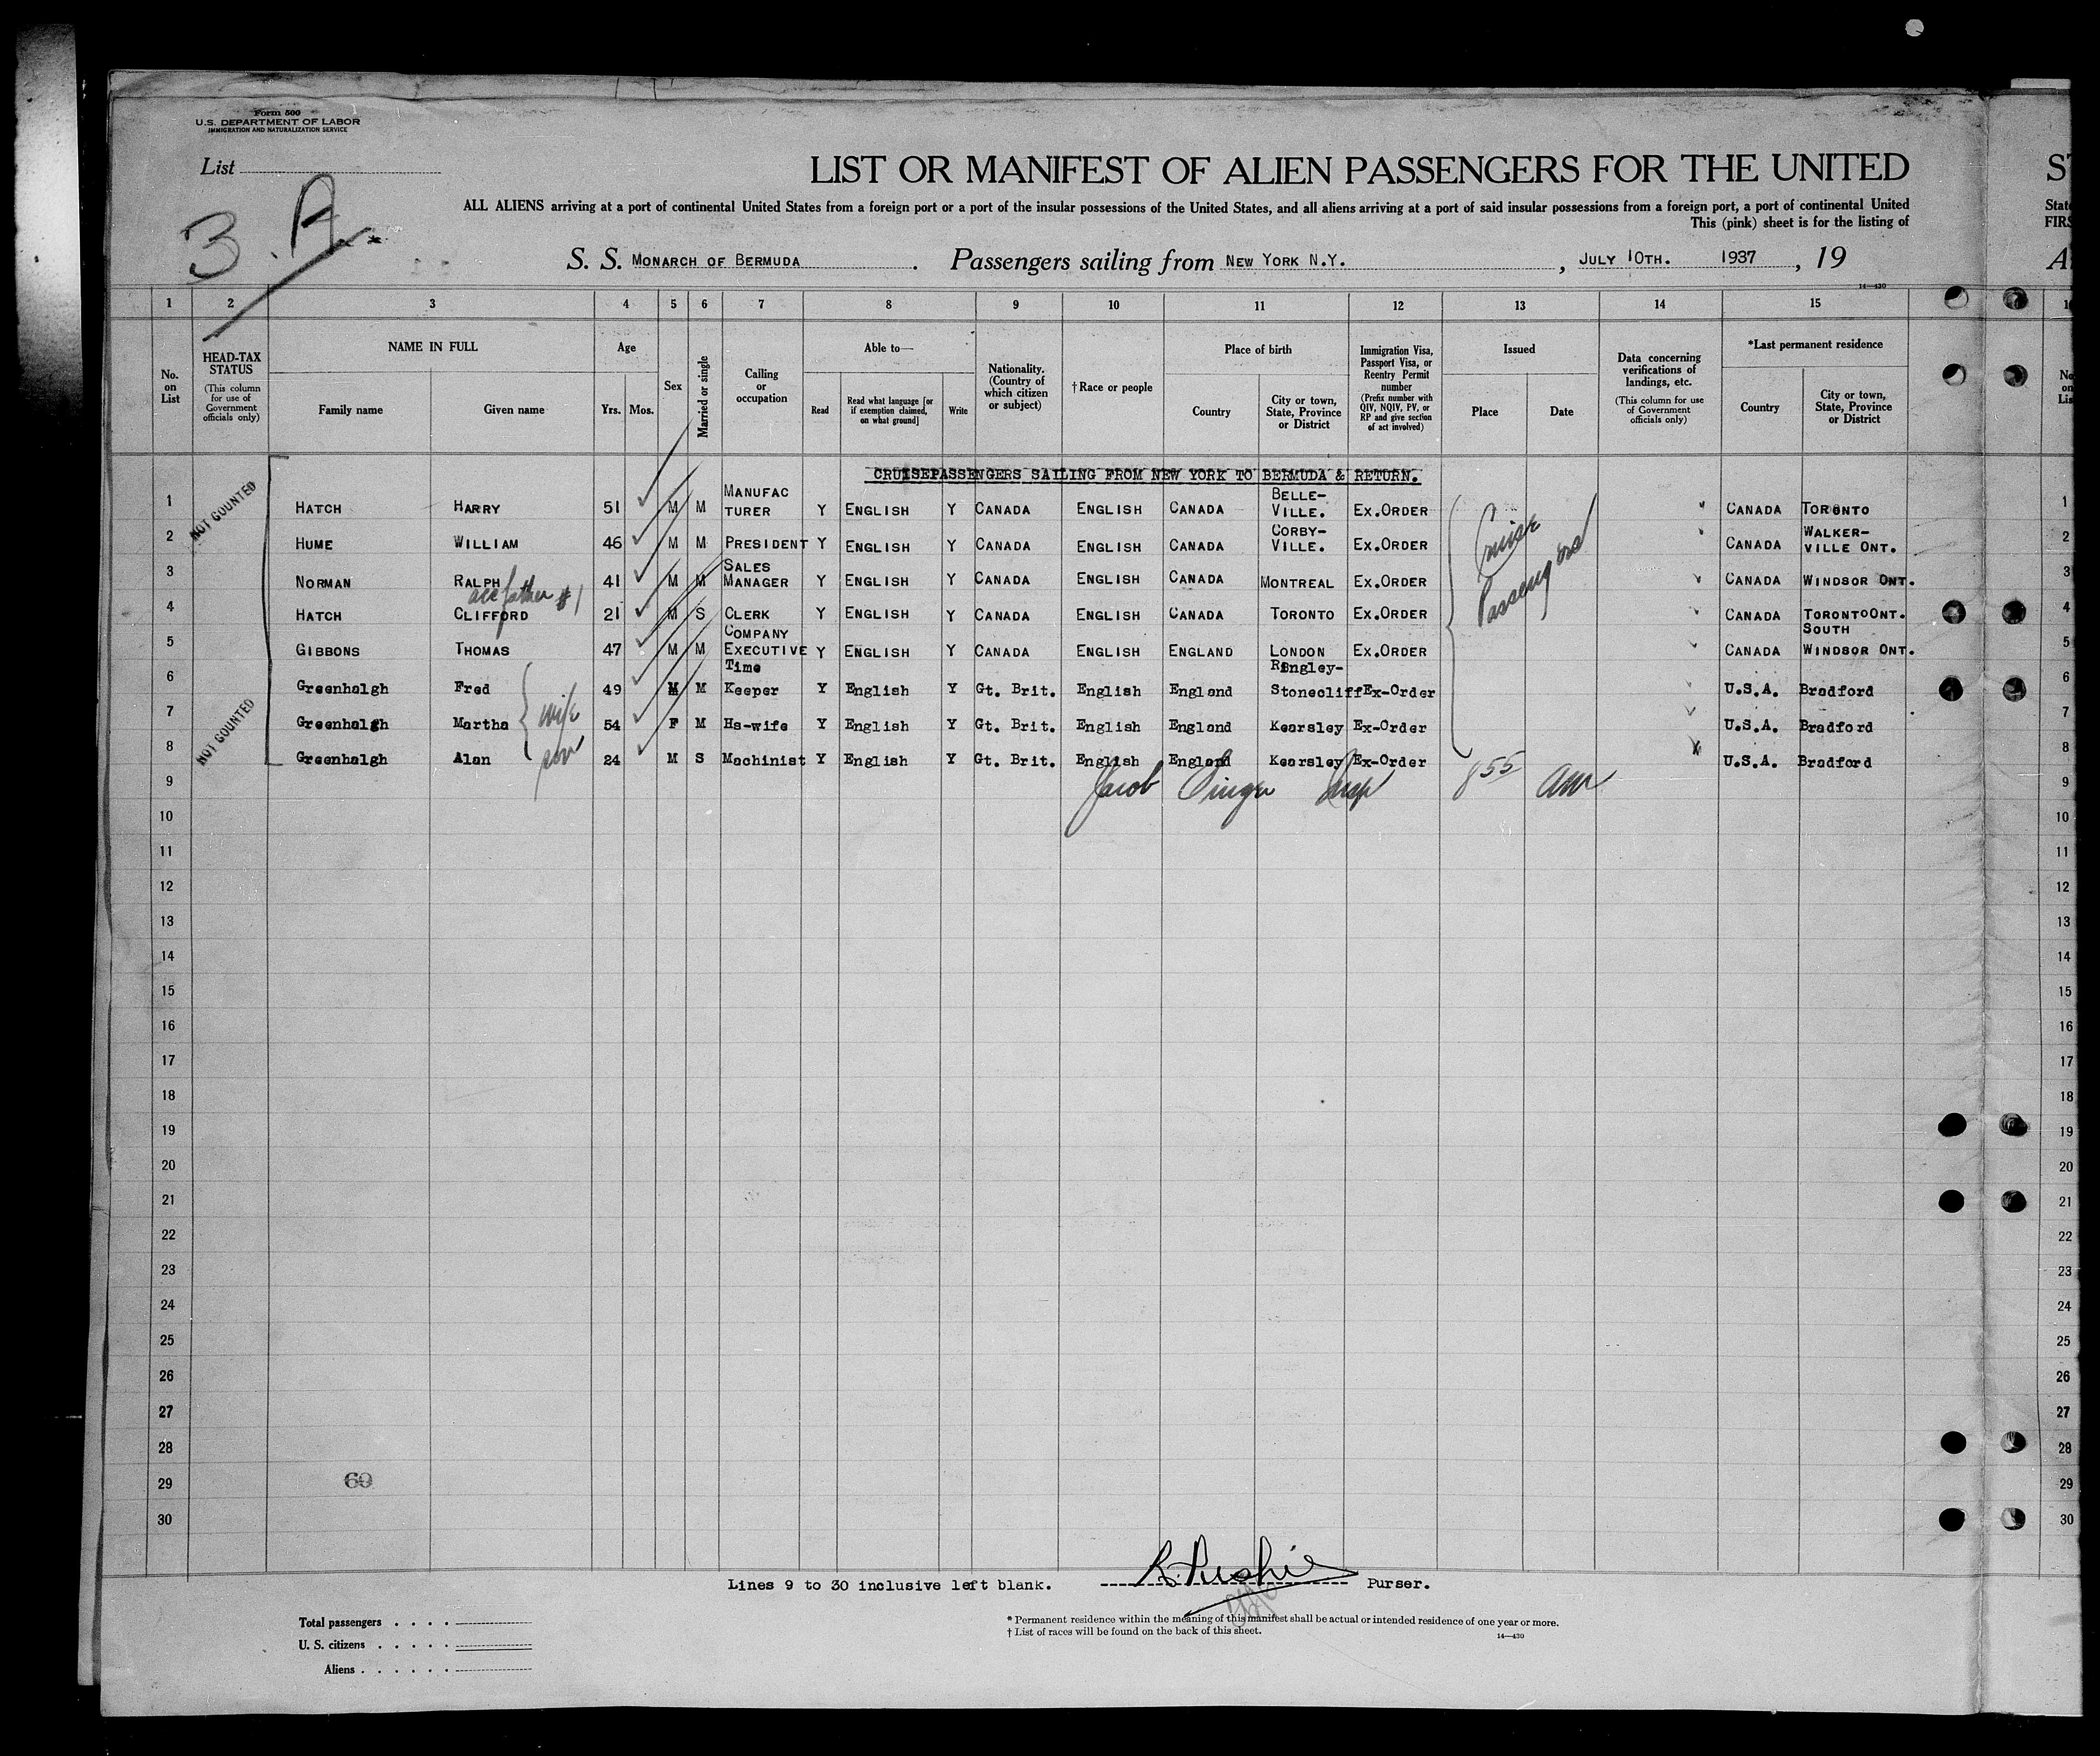 Form 500
U.S. DEPARTMENT OF LABOR
IMMIGRATION AND NATURALIZATION SERVICE
List
3 A.
LIST OR MANIFEST OF ALIEN PASSENGERS FOR THE UNITED
ALL ALIENS arriving at a port of continental United States from a foreign port or a port of the insular possessions of the United States, and all aliens arriving at a port of said insular possessions from a foreign port, a port of continental United
This (pink) sheet is for the listing of
S. S. MONARCH OF BERMUDA . Passengers sailing from NEW YORK N.Y. , JULY 10TH. 1937 , 19
14—430
1 2 3 4 5 6 7 8 9 10 11 12 13 14 15
No. on List
HEAD-TAX STATUS (This column for use of Government officials only)
NAME IN FULL Family name Given name
Age Yrs. Mos.
Sex
Married or single
Calling or occupation
Able to— Read Read what language [or if exemption claimed, on what ground] Write
Nationality. (Country of which citizen or subject)
†Race or people
Place of birth Country City or town, State, Province or District
Immigration Visa, Passport Visa, or Reentry Permit number (Prefix number with QIV, NQIV, PV, or RP and give section of act involved)
Issued Place Date
Data concerning verifications of landings, etc. (This column for use of Government officials only)
*Last permanent residence Country City or town, State, Province or District
CRUISEPASSENGERS SAILING FROM NEW YORK TO BERMUDA & RETURN.
NOT COUNTED
1 HATCH HARRY 51 M M MANUFAC TURER Y ENGLISH Y CANADA ENGLISH CANADA BELLE-VILLE. EX.ORDER CANADA TORONTO 1
2 HUME WILLIAM 46 M M PRESIDENT Y ENGLISH Y CANADA ENGLISH CANADA CORBY-VILLE. EX.ORDER CANADA WALKER-VILLE ONT. 2
3 NORMAN RALPH 41 M M SALES MANAGER Y ENGLISH Y CANADA ENGLISH CANADA MONTREAL EX.ORDER CANADA WINDSOR ONT. 3
acc father #1
4 HATCH CLIFFORD 21 M S CLERK Y ENGLISH Y CANADA ENGLISH CANADA TORONTO EX.ORDER CANADA TORONTOONT. 4
5 GIBBONS THOMAS 47 M M COMPANY EXECUTIVE Y ENGLISH Y CANADA ENGLISH ENGLAND LONDON EX.ORDER CANADA SOUTH WINDSOR ONT. 5
6 Greenhalgh Fred 49 M M Time Keeper Y English Y Gt. Brit. English England Ringley-Stonecliff Ex-Order U.S.A. Bradford 6
7 Greenhalgh Martha wife 54 F M Hs-wife Y English Y Gt. Brit. English England Kearsley Ex-Order U.S.A. Bradford 7
8 Greenhalgh Alan son 24 M S Machinist Y English Y Gt. Brit. English England Kearsley Ex-Order U.S.A. Bradford 8
NOT COUNTED
Cruise
Passengers
9 Jacob Insp 855 am 9
10 10
11 11
12 12
13 13
14 14
15 15
16 16
17 17
18 18
19 19
20 20
21 21
22 22
23 23
24 24
25 25
26 26
27 27
28 28
29 60 29
30 30
Lines 9 to 30 inclusive left blank. Purser.
Total passengers . . . .
U. S. citizens . . . . .
Aliens . . . . . .
* Permanent residence within the meaning of this manifest shall be actual or intended residence of one year or more.
† List of races will be found on the back of this sheet.
14—430